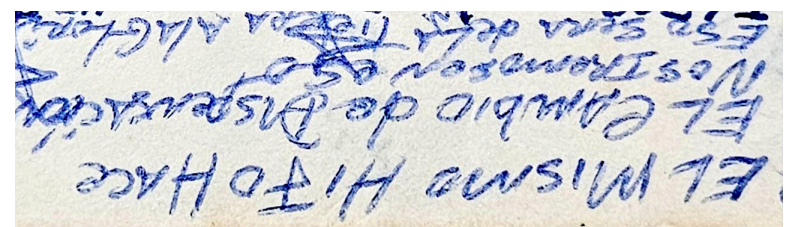 EL MISMO HIJO HACE
EL CAMBIO de DISPENSACIÓN
NOS TRANSPON eso
ESO SERA de LA TIERRA A LA GLORIA